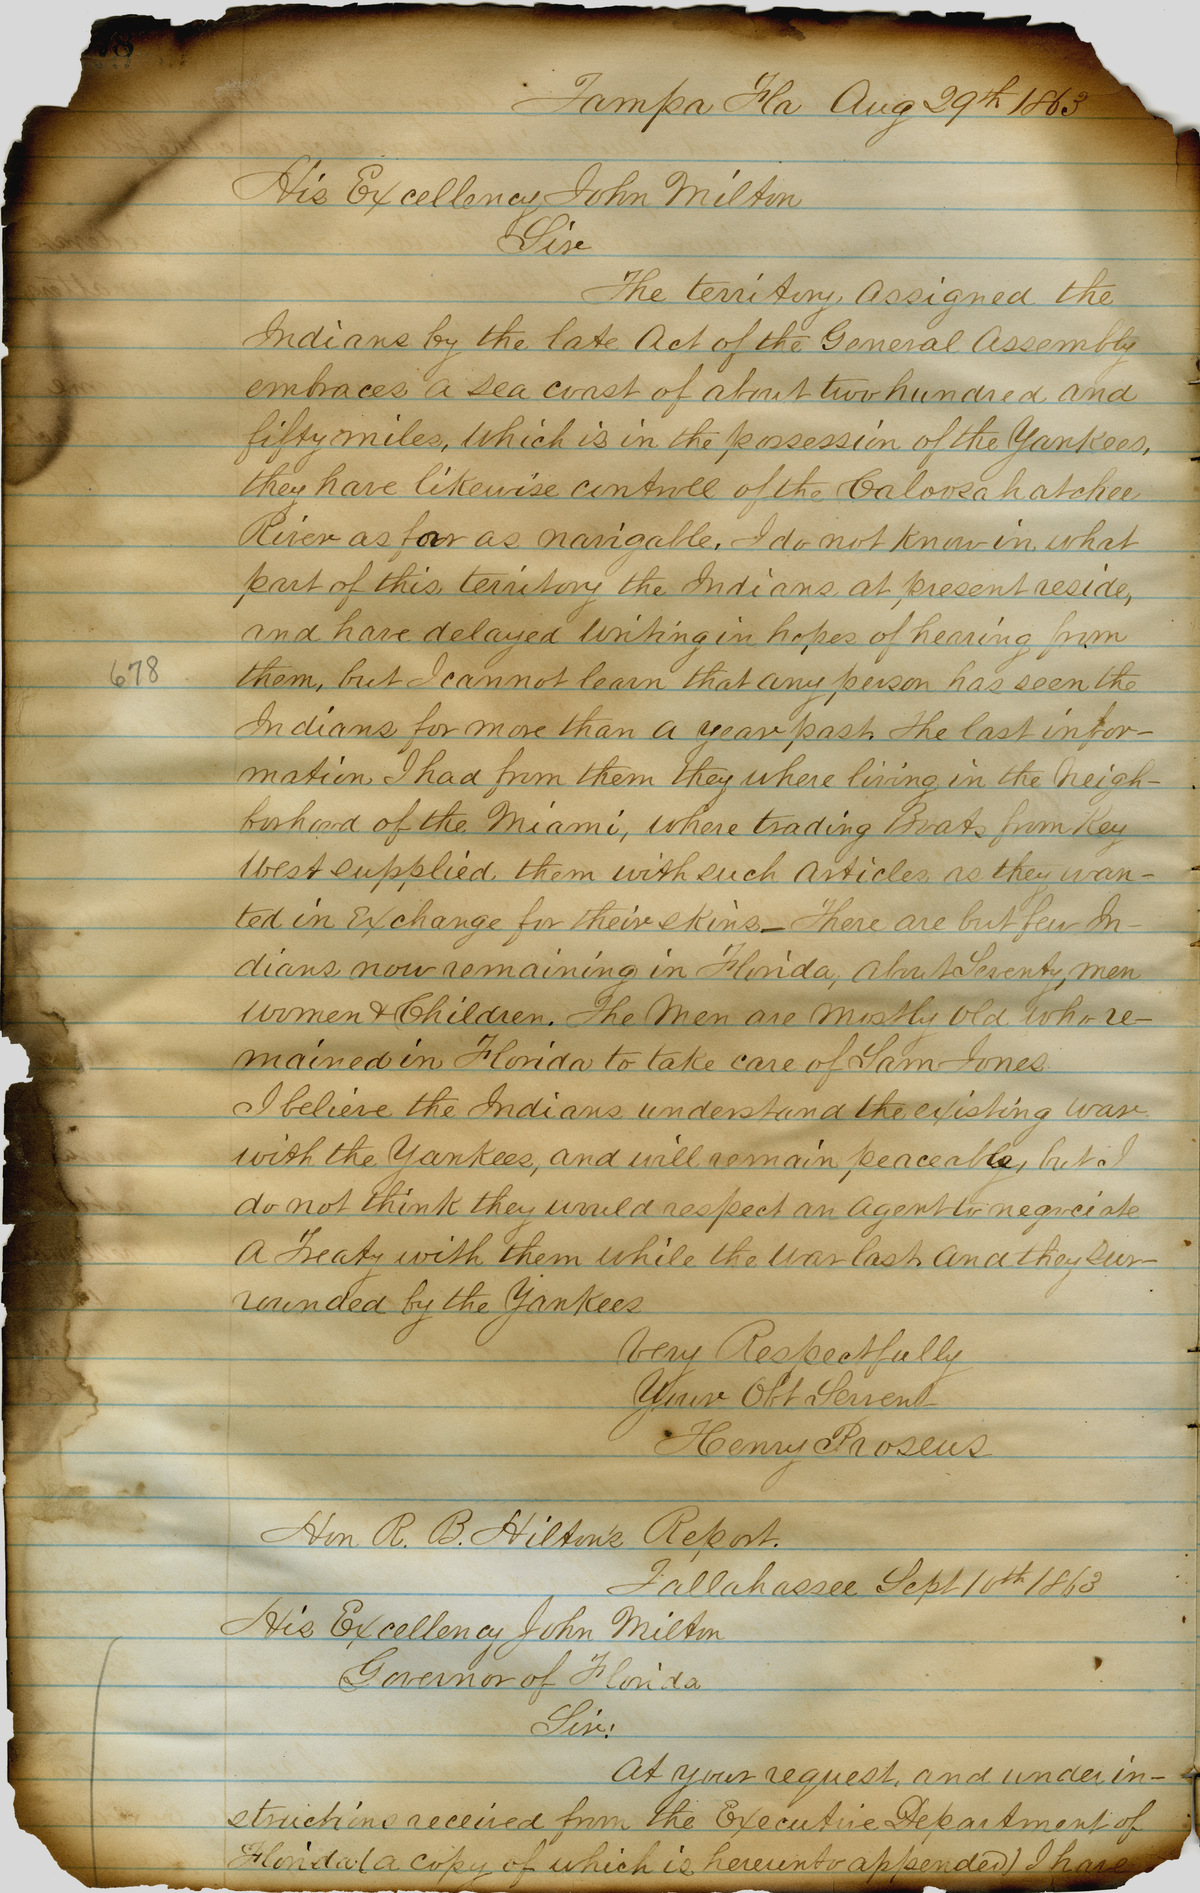 8
Tampa Fla Aug 29th 1863
His Excellency John Milton
Sir
The territory assigned the
Indians by the late Act of the General Assembly
embraces a sea coast of about two hundred and
fifty miles, which is in the possession of the Yankees,
they have likewise controll of the Caloosahatchee
River as far as navigable. I do not know in what
part of this territory the Indians at present reside,
and have delayed writing in hopes of hearing from
678
them, but I cannot learn that any person has seen the
Indians for more than a year past. The last infor-
mation I had from them they where living in the Neigh-
borhood of the Miami, where trading Boats from Key
West supplied them with such articles as they wan-
ted in Exchange for their skins_ There are but few In-
dians now remaining in Florida, about Seventy, men
women & Children. The Men are mostly old who re-
mained in Florida to take care of Sam Jones
I believe the Indians understand the existing war
with the Yankees, and will remain peaceable, but I
do not think they would respect an agent to negociate
a Treaty with them while the War last and they sur-
rounded by the Yankees
Very Respectfully
Your Obt Servent
Henry Proseus
Hon R. B. Hilton's Report.
Tallahassee Sept 10th 1863
His Excellency John Milton
Governor of Florida
Sir:
At your request, and under in-
structions received from the Executive Department of
Florida (a copy of which is hereunto appended) I have